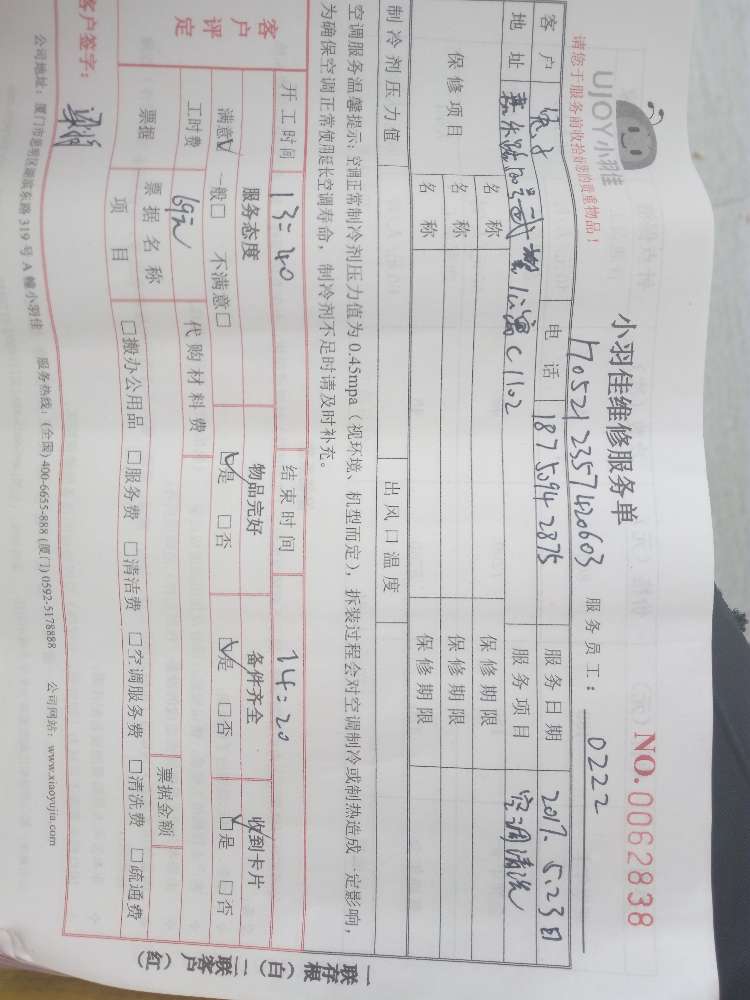 UJOY小羽佳
请您于服务前收拾好您的贵重物品！
小羽佳维修服务单
NO.0062838
1705212357420603
服务员工： 0222
客户 电话 18759942875 服务日期 2017. 5.23日
地址 C1102 服务项目 空调清洗
保修项目 名称 保修期限
名称 保修期限
名称 保修期限
制冷剂压力值 出风口温度
空调服务温馨提示：空调正常制冷剂压力值为 0.45mpa（视环境、机型而定），拆装过程会对空调制冷或制热造成一定影响，
为确保空调正常使用延长空调寿命，制冷剂不足时请及时补充。
开工时间 13:40 结束时间 14:20
客户评定 服务态度 物品完好 备件齐全 收到卡片
满意☑ 一般□ 不满意□ ☑是 □否 ☑是 □否 ☑是 □否
工时费 69元 代购材料费
票据 票据名称 票据金额
项目 □搬办公用品 □服务费 □清洁费 □空调服务费 □清洗费 □疏通费
客户签字：
公司地址：厦门市思明区湖滨东路 319 号 A 幢小羽佳 服务热线：(全国) 400-6655-888 (厦门) 0592-5178888 公司网站：www.xiaoyujia.com
一联存根（白）二联客户（红）